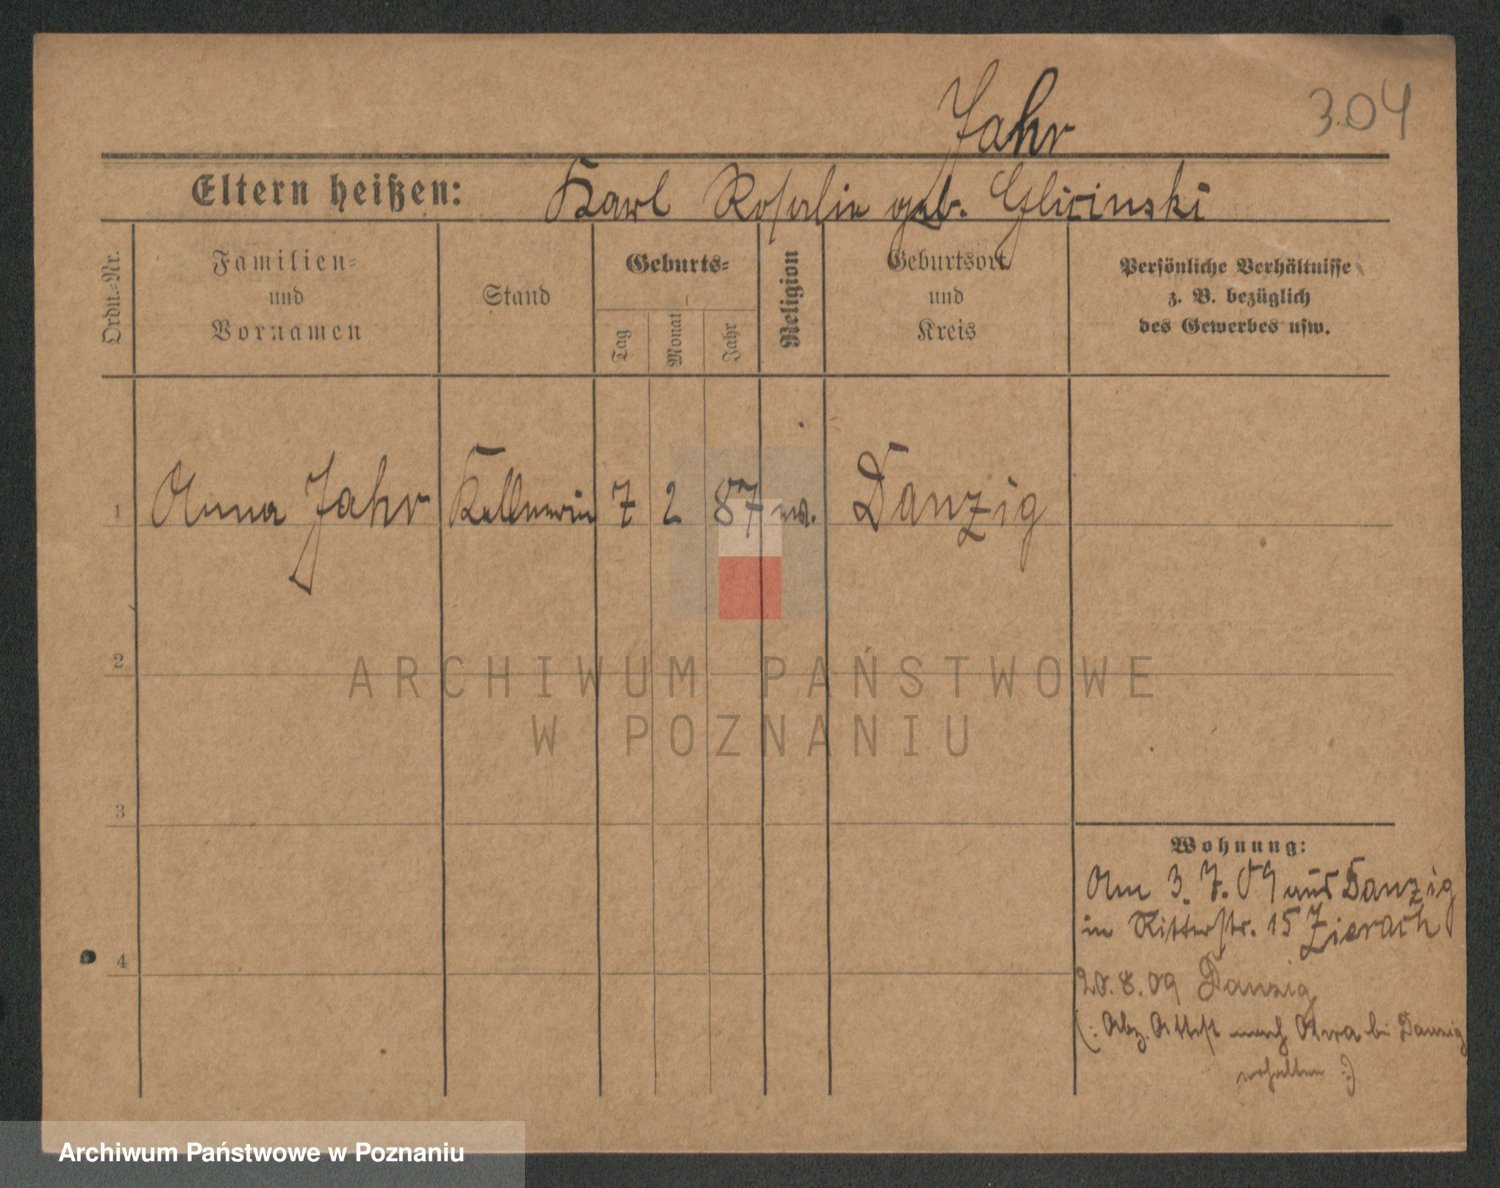 Jahr
304
Eltern heißen: Karl Rosalie geb. Glicinski
Ordn.-Nr.
Familien-
und
Vornamen
Stand
Geburts-
Tag
Monat
Jahr
Religion
Geburtsort
und
Kreis
Persönliche Verhältnisse
z. B. bezüglich
des Gewerbes usw.
1 Anna Jahr Kellnerin 7 2 87 ev. Danzig
2
3
4
Wohnung:
Am 3.7.09 aus Danzig
in Ritterstr. 15 Zierach
20.8.09 Danzig
(: Abz. Attest nach Ohra bei Danzig
erhalten :)
ARCHIWUM PAŃSTWOWE
W POZNANIU
Archiwum Państwowe w Poznaniu